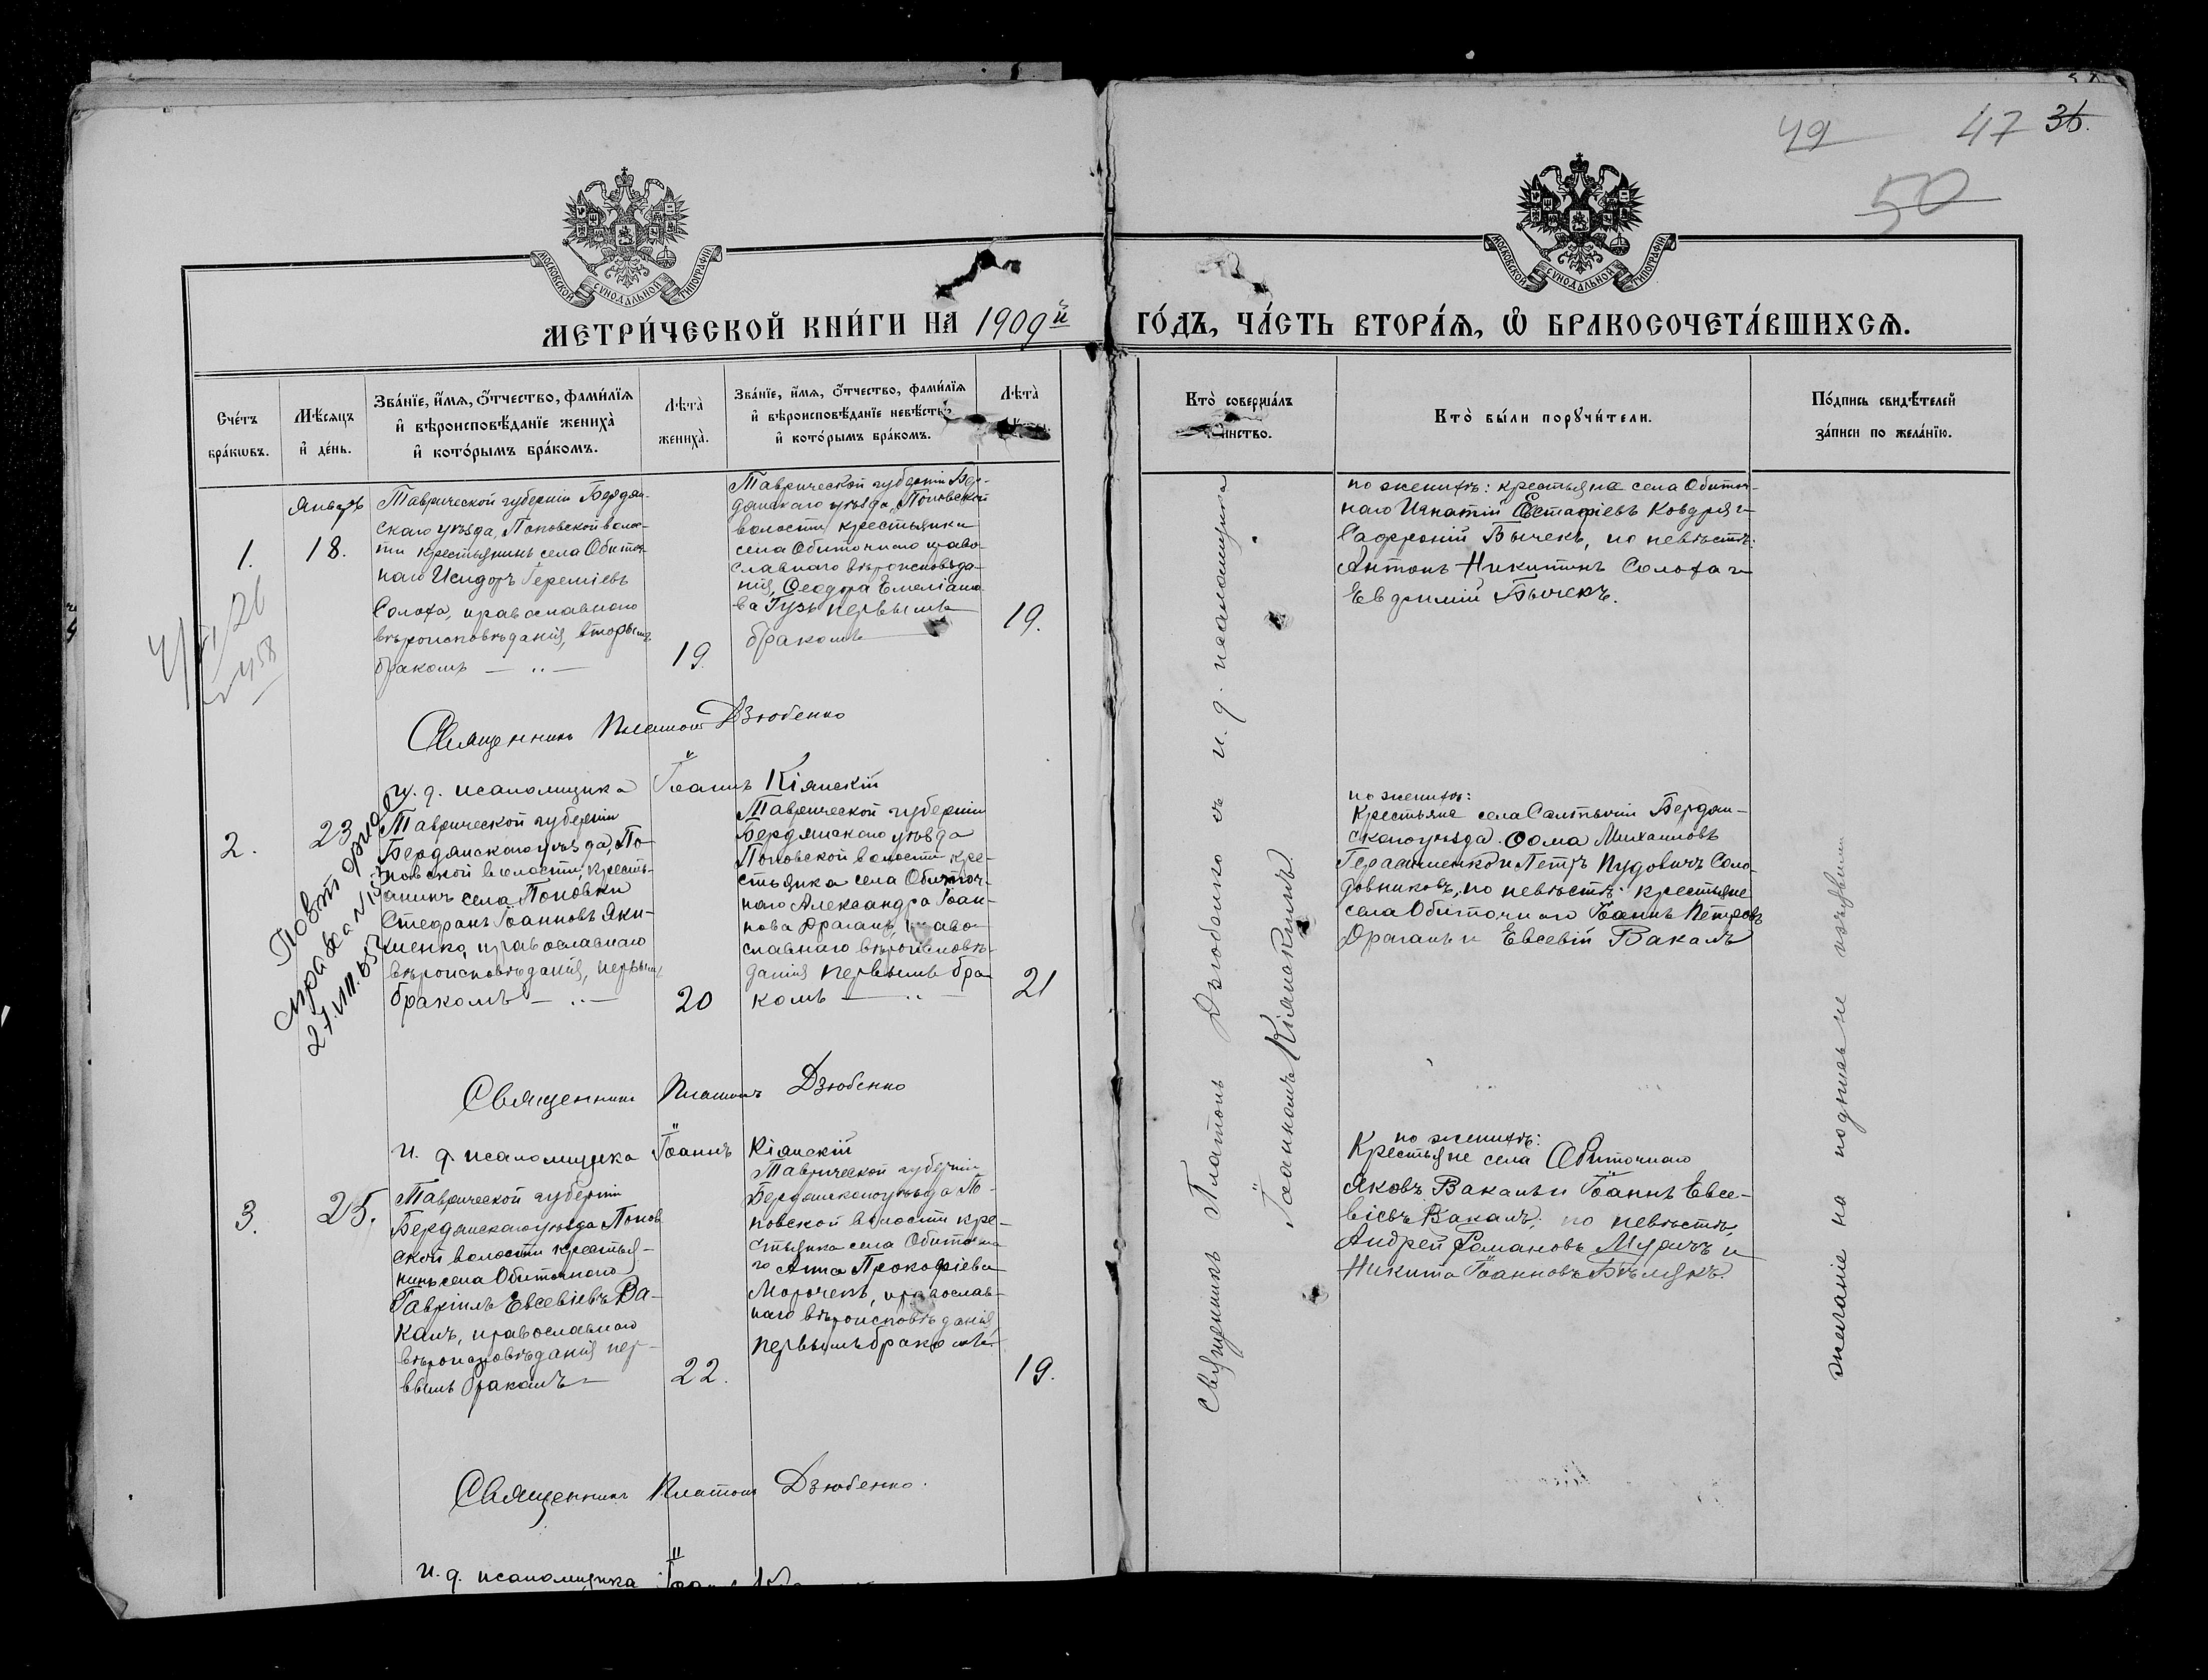 49 47 36.
50
МОСКОВСКОЙ СѴНОДАЛЬНОЙ ТИПОГРАФІИ
МОСКОВСКОЙ СѴНОДАЛЬНОЙ ТИПОГРАФІИ
МЕТРИ́ЧЕСКОЙ КНИ́ГИ НА 1909й ГО́ДЪ, ЧА́СТЬ ВТОРА́Ѧ, Ѡ БРАКОСОЧЕТА́ВШИХСѦ.
Сче́тъ
бра́кѡвъ.
Мѣ́сѧцъ
и де́нь.
Зва́нїе, и́мѧ, ѻ́тчество, фами́лїѧ
и вѣроисповѣ́данїе жениха̀
и кото́рымъ бра́комъ.
Лѣта̀
жениха̀.
Зва́нїе, и́мѧ, ѻ́тчество, фами́лїѧ
и вѣроисповѣ́данїе невѣ́сты
и кото́рымъ бра́комъ.
Лѣта̀
Кто̀ соверша́лъ
таинство.
Кто̀ бы́ли порꙋчи́тели.
По́дпись свидѣ́телей
за́писи по жела́нїю.
1.
Январь
18.
Таврической губерніи Бердян-
скаго уѣзда, Поповской волос-
ти крестьянинъ села Обиточ-
наго Исидоръ Іереміевъ
Солоха, православнаго
вѣроисповѣданія, вторымъ
бракомъ — „ —
19.
Таврической губерніи Бер-
дянскаго уѣзда, Поповской
волости крестьянка
села Обиточнаго право-
славнаго вѣроисповѣда-
нія, Ѳеодора Емеліано-
ва Гузь первымъ
бракомъ
19.
по женихѣ: крестьяне села Обиточ-
наго Игнатій Евстафіевъ Ковдря и
Сафроній Бычекъ, по невѣстѣ:
Антонъ Никитинъ Солоха и
Евдокимій Бычекъ.
Священникъ Платонъ Дзюбенко
и. д. псаломщика Іоаннъ Кіянскій
2.
23
Таврической губерніи
Бердянскаго уѣзда, По-
повской волости, кресть-
янинъ села Поповки
Стефанъ Іоанновъ Яки-
менко, православнаго
вѣроисповѣданія, первымъ
бракомъ — „ —
20
Таврической губерніи
Бердянскаго уѣзда
Поповской волости кре-
стьянка села Обиточ-
наго Александра Іоан-
нова Драганъ, право-
славнаго вѣроисповѣ-
данія первымъ бра-
комъ — „ —
21
по женихѣ:
Крестьяне села Салтычіи Бердян-
скаго уѣзда. Ѳома Михаиловъ
Герасименко и Петръ Пудовичъ Соло-
довниковъ, по невѣстѣ: крестьяне
села Обиточнаго Іоаннъ Петровъ
Драганъ и Евсевій Вакалъ
Священникъ Платонъ Дзюбенко
и. д. псаломщика Іоаннъ Кіянскій
3.
25.
Таврической губерніи
Бердянскаго уѣзда Попов
ской волости крестья-
нинъ села Обиточнаго
Гавріилъ Евсевіевъ Ва-
калъ, православнаго
вѣроисповѣданія пер-
вымъ бракомъ —
22.
Таврической губерніи
Бердянскаго уѣзда По-
повской волости кре-
стьянка села Обиточна
го Анна Прокофіева
Морочекъ, православ-
наго вѣроисповѣданія,
первымъ бракомъ.
19.
по женихѣ:
Крестьяне села Обиточнаго
Яковъ Вакалъ и Іоаннъ Евсе-
віевъ Вакалъ; по невѣстѣ,
Андрей Романовъ и
Никита Іоанновъ
Священникъ Платонъ Дзюбенко.
и. д. псаломщика
Священникъ Платонъ Дзюбенко съ и. д. псаломщика
Іоанномъ Кіянскимъ.
желаніе на подпись не изъявили
справка
27.VIII.65